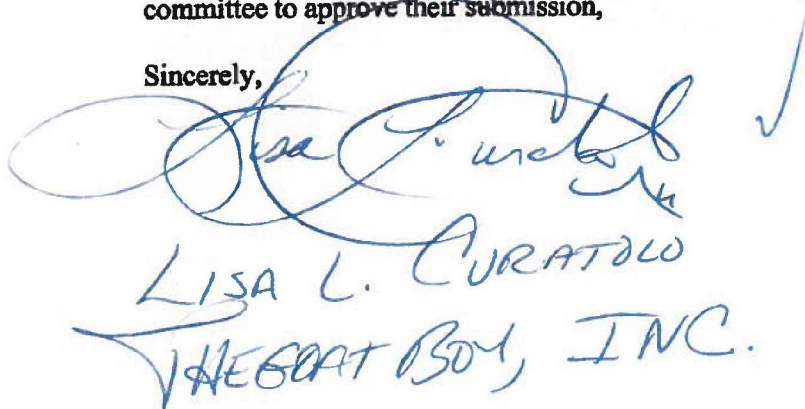 committee to approve their submission,
Sincerely,
Lisa Curatolo
LISA L. CURATOLO
THEGOAT BOY, INC.